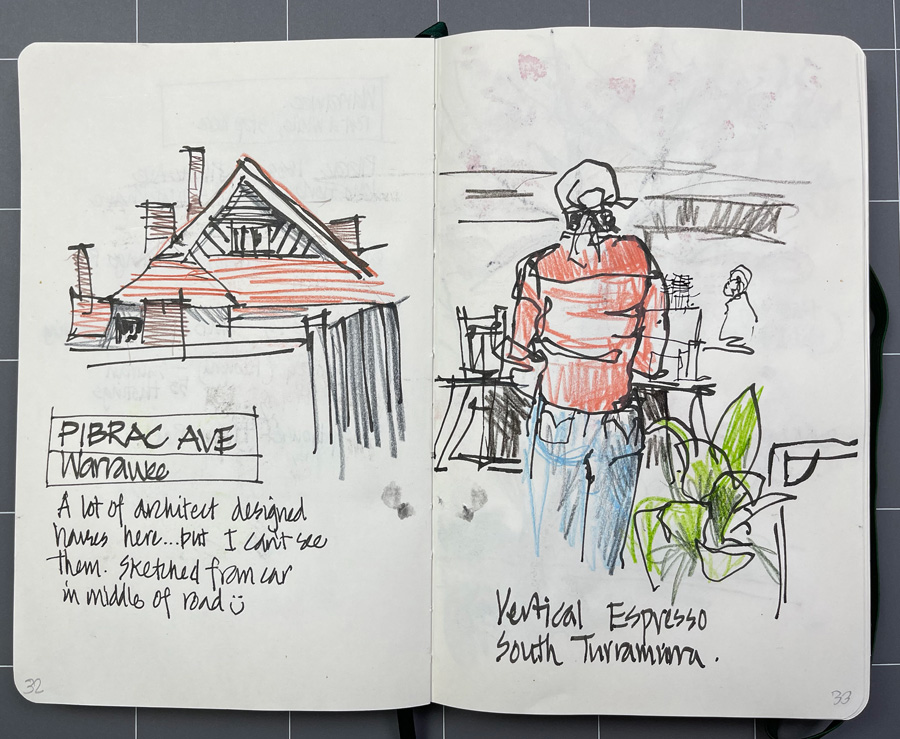 PIBRAC AVE
Warrawee
A lot of architect designed
houses here...but I can't see
them. Sketched from car
in middle of road
32
Vertical Espresso
South Turramurra.
33